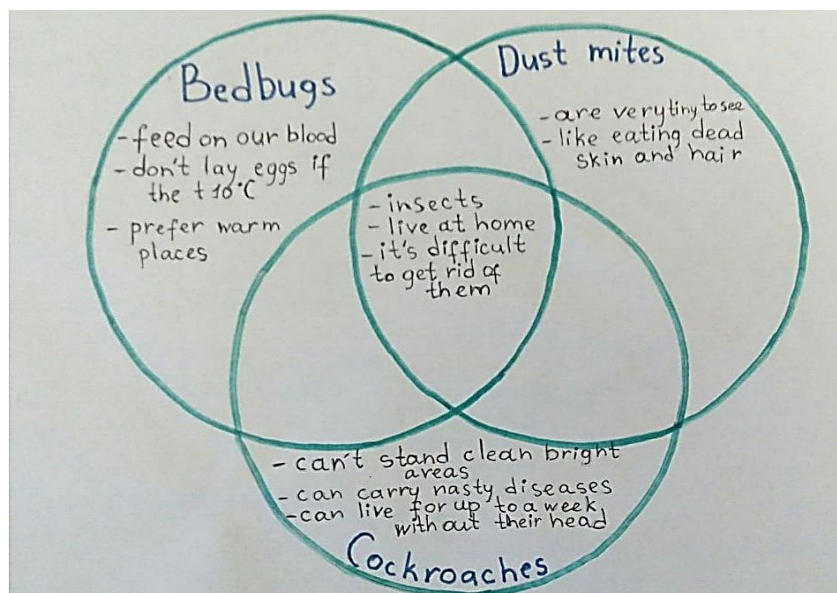 Bedbugs
-feed on our blood
-don't lay eggs if
the t 10°C
- prefer warm
places
Dust mites
- are very tiny to see
- like eating dead
skin and hair
- insects
- live at home
- it's difficult
to get rid of
them
- can't stand clean bright
areas
- can carry nasty diseases
- can live for up to a week
without their head
Cockroaches